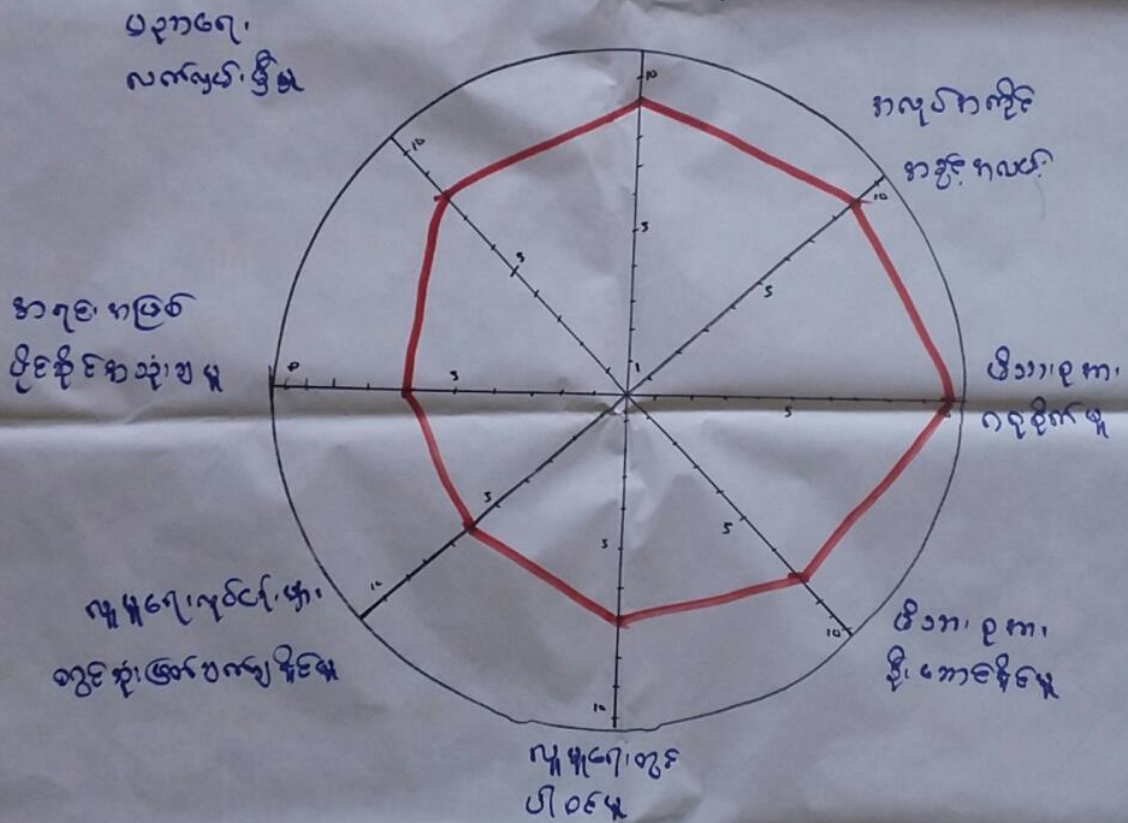 ပညာရေး
လက်လှမ်းမှီမှု
အလုပ်အကိုင်
အခွင့်အလမ်း
မိသားစုအား
ဂရုစိုက်မှု
မိသားစုအား
ဦးဆောင်နိုင်မှု
လူမှုရေးတွင်
ပါဝင်မှု
လူမှုရေးလုပ်ငန်းများ
တွင်ဆုံးဖြတ်ချက်ချနိုင်မှု
အရင်းအမြစ်
ပိုင်ဆိုင်အသုံးချမှု
10
5
10
5
5
5
10
5
10
5
10
5
5
10
1